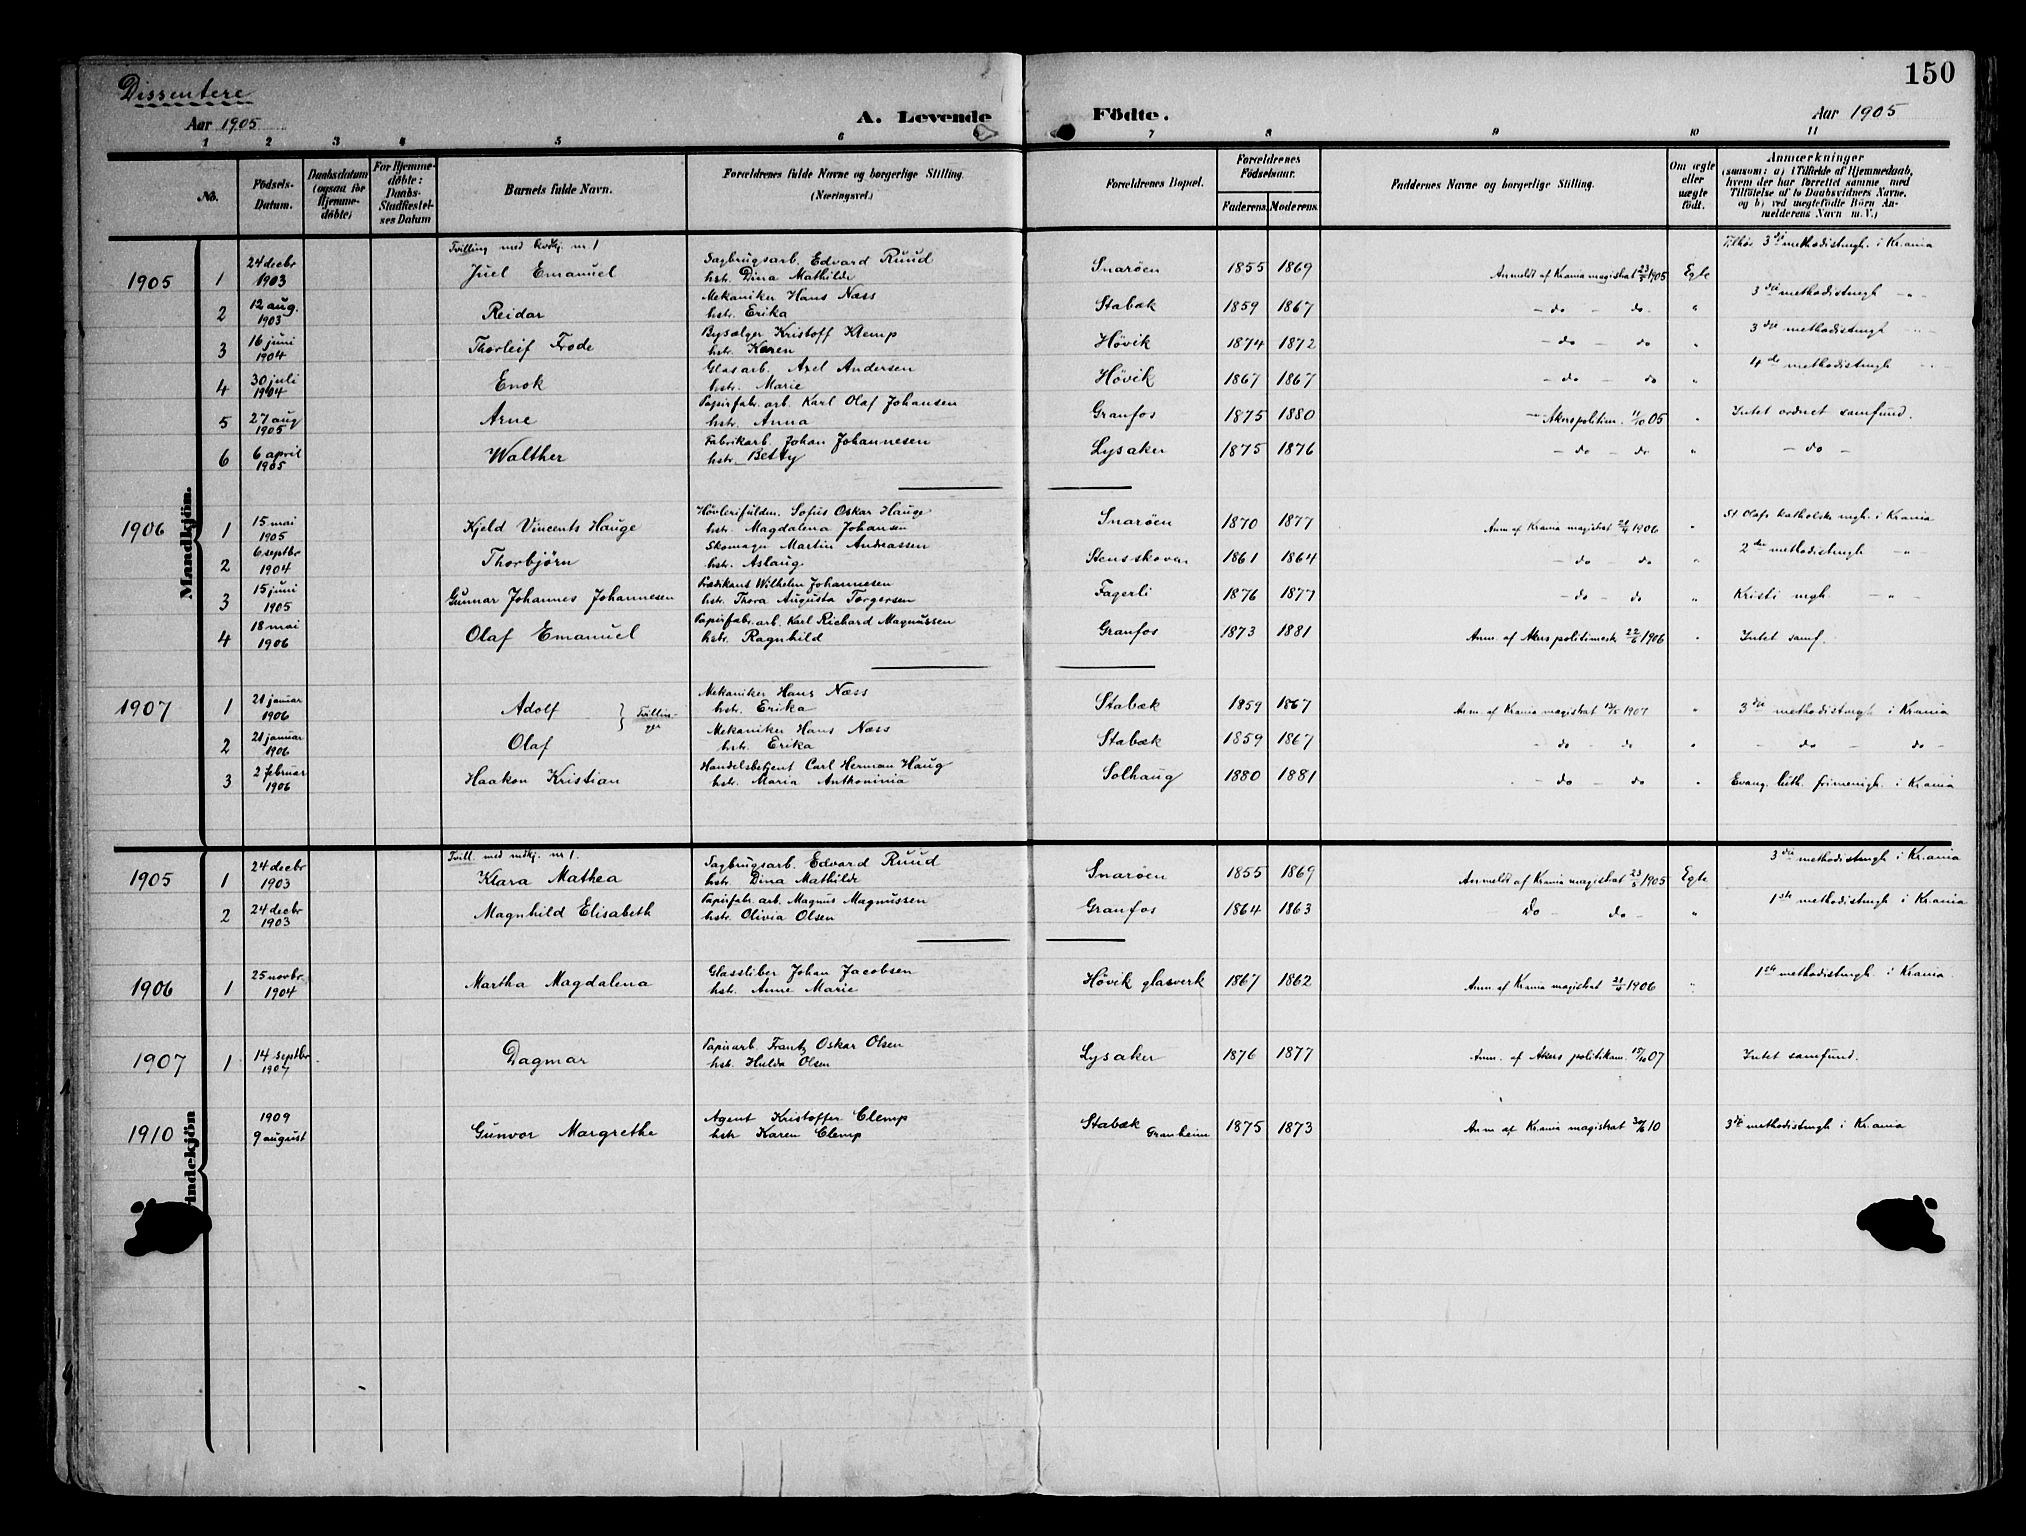 150
Dissentere
Aar 1905
A. Levende Födte.
Aar 1905
1 2 3 4 5 6 7 8 9 10 11
No.
Födsels-Datum.
Daabsdatum (ogsaa for Hjemmedöbte)
For Hjemmedöbte: Daabs-Stadfestelses Datum
Barnets fulde Navn.
Forældrenes fulde Navne og borgerlige Stilling. (Næringsvei.)
Forældrenes Bopæl.
Forældrenes Födselsaar. Faderens. Moderens.
Faddernes Navne og borgerlige Stilling.
Om ægte eller uægte födt.
Anmærkninger (saasom: a) i Tilfælde af Hjemmedaab, hvem der har forrettet samme med Tilföielse af to Daabsvidners Navne, og b) ved uægtefödte Börn Anmelderens Navn m. V.)
Mandkjön.
Tvilling med kvdkj. nr. 1
1905 1 24 decbr 1903 Juel Emanuel Sagbrugsarb. Edvard Ruud hstr. Dina Mathilde Snarøen 1855 1869 Anmeldt af Krania magistrat 23/5 1905 Egte Tilhør 3die methodistmgh. i Krania
2 12 aug. 1903 Reidar Mekaniker Hans Næss hstr. Erika Stabæk 1859 1867 - do - do. " 3die methodistmgh - " -
3 16 juni 1904 Thorleif Frode Bysælger Kristoff Klemp hstr. Karen Høvik 1874 1872 - do - do " 3die methodistmgh - " -
4 30 juli 1904 Enok Glasarb. Axel Andersen hstr. Marie Høvik 1867 1867 - do - do " 4de methodistmgh - " -
5 27 aug 1905 Arne Papirfabr. arb. Karl Olaf Johansen hstr. Anna Granfos 1875 1880 Akers politim. 11/10 05 " Intet ordnet samfund.
6 6 april 1905 Walther Fabrikarb. Johan Johannesen hstr. Betty Lysaker 1875 1876 - do - do " - do -
1906 1 15 mai 1905 Kjeld Vincents Hauge Høvlerifuldm. Sofus Oskar Hauge hstr. Magdalena Johansen Snarøen 1870 1877 Anm. af Krania magistrat 1906 " St Olafs katholske mgh. i Krania
2 6 septbr 1904 Thorbjørn Skomager Martin Andreassen hstr. Aslaug Stensskoven 1861 1864 - do - do " 2den methodistmgh - " -
3 15 juni 1905 Gunnar Johannes Johannesen Prædikant Wilhelm Johannesen hstr. Thora Augusta Torgersen Fagerli 1876 1877 - do - do " Kristi mgh. - " -
4 18 mai 1906 Olaf Emanuel Papirfabr. arb. Karl Richard Magnussen hstr. Ragnhild Granfos 1873 1881 Anm. af Akers politimester 22/6 1906 " Intet samf.
1907 1 21 januar 1906 Adolf } Tvillinger Mekaniker Hans Næss hstr. Erika Stabæk 1859 1867 Anm. af Krania magistrat 1907 " 3die methodistmgh i Krania
2 21 januar 1906 Olaf Mekaniker Hans Næss hstr. Erika Stabæk 1859 1867 - do - do " - do - do -
3 2 februar 1906 Haakon Kristian Handelsbetjent Carl Herman Haug hstr. Maria Anthoninia Solhaug 1880 1881 - do - do " Evang. luth. frimenigh. i Krania
Kvindekjön
Tvill. med mdkj. nr 1.
1905 1 24 decbr 1903 Klara Mathea Sagbrugsarb. Edvard Ruud hstr. Dina Mathilde Snarøen 1855 1869 Anmeldt af Krania magistrat 23/5 1905 Egte 3die methodistmgh i Krania
2 24 decbr 1903 Magnhild Elisabeth Papirfabr. arb. Magnus Magnussen hstr. Olivia Olsen Granfos 1864 1863 - do do - " 1ste methodistmgh i Krania
1906 1 25 novbr 1904 Martha Magdalena Glassliber Johan Jacobsen hstr. Anne Marie Høvik glasverk 1867 1862 Anm. af Krania magistrat 1906 " 1ste methodistmgh. i Krania.
1907 1 14 septbr 1907 Dagmar Papirarb. Frantz Oskar Olsen hstr. Hulda Olsen Lysaker 1876 1877 Anm. af Akers politikam. 15/10 07 Intet samfund.
1910 1909 9 august Gunvor Margrethe Agent Kristoffer Clemp hstr Karen Clemp Stabæk Granheim 1875 1873 Anm af Krania magistrat 10 3die methodistmgh i Krania